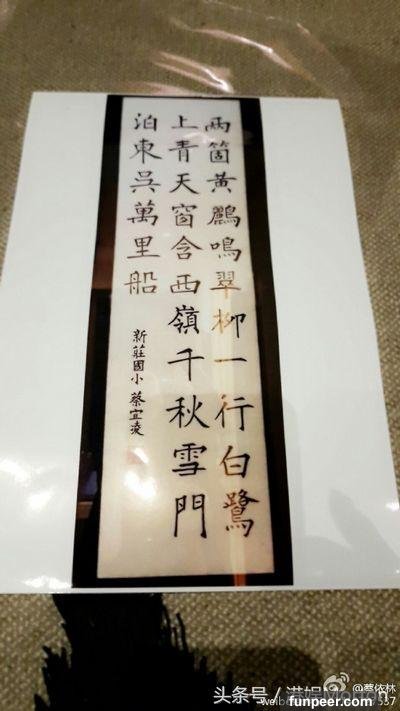 兩箇黃鸝鳴翠柳一行白鷺
上青天窗含西嶺千秋雪門
泊東吳萬里船
新莊國小 蔡宜凌
@蔡依林
头条号 / 港娱Mohan
funpeer.com